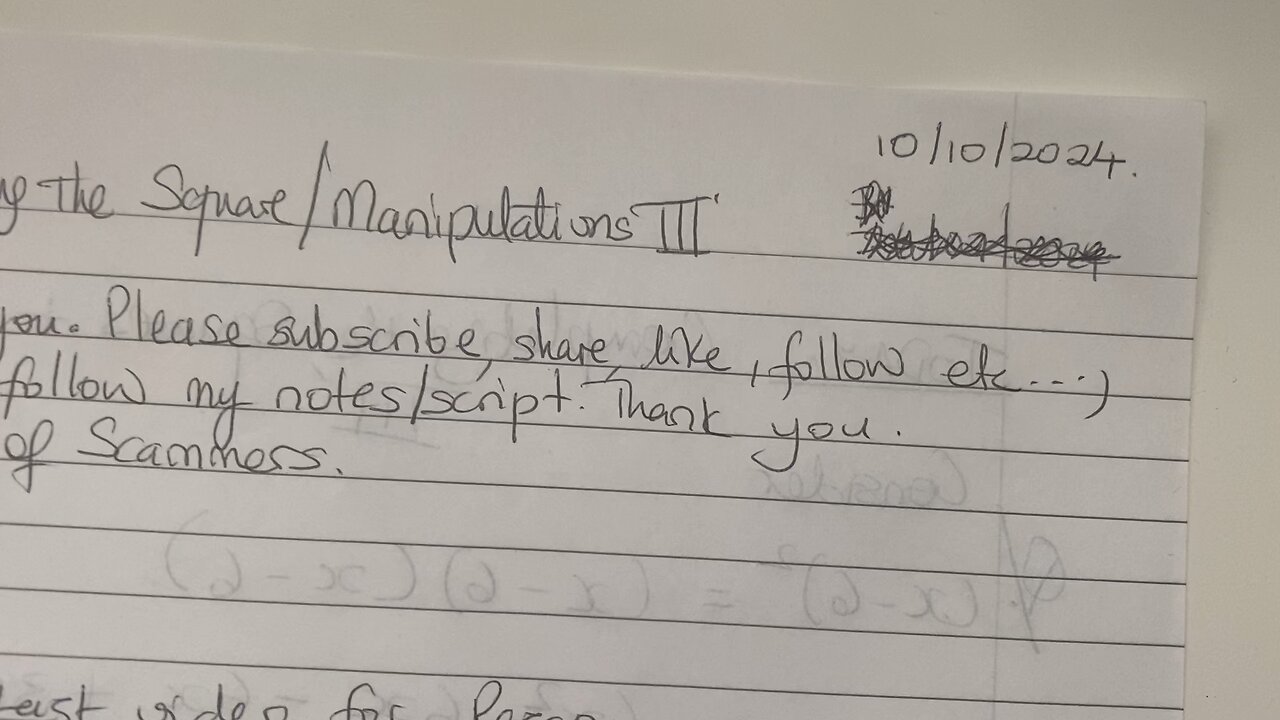 10/10/2024.
g The Square/Manipulations III
you. Please subscribe, share, like, follow etc....)
follow my notes/script. Thank you.
of Scamness.
(x-6)² = (x-6)(x-6)
video for